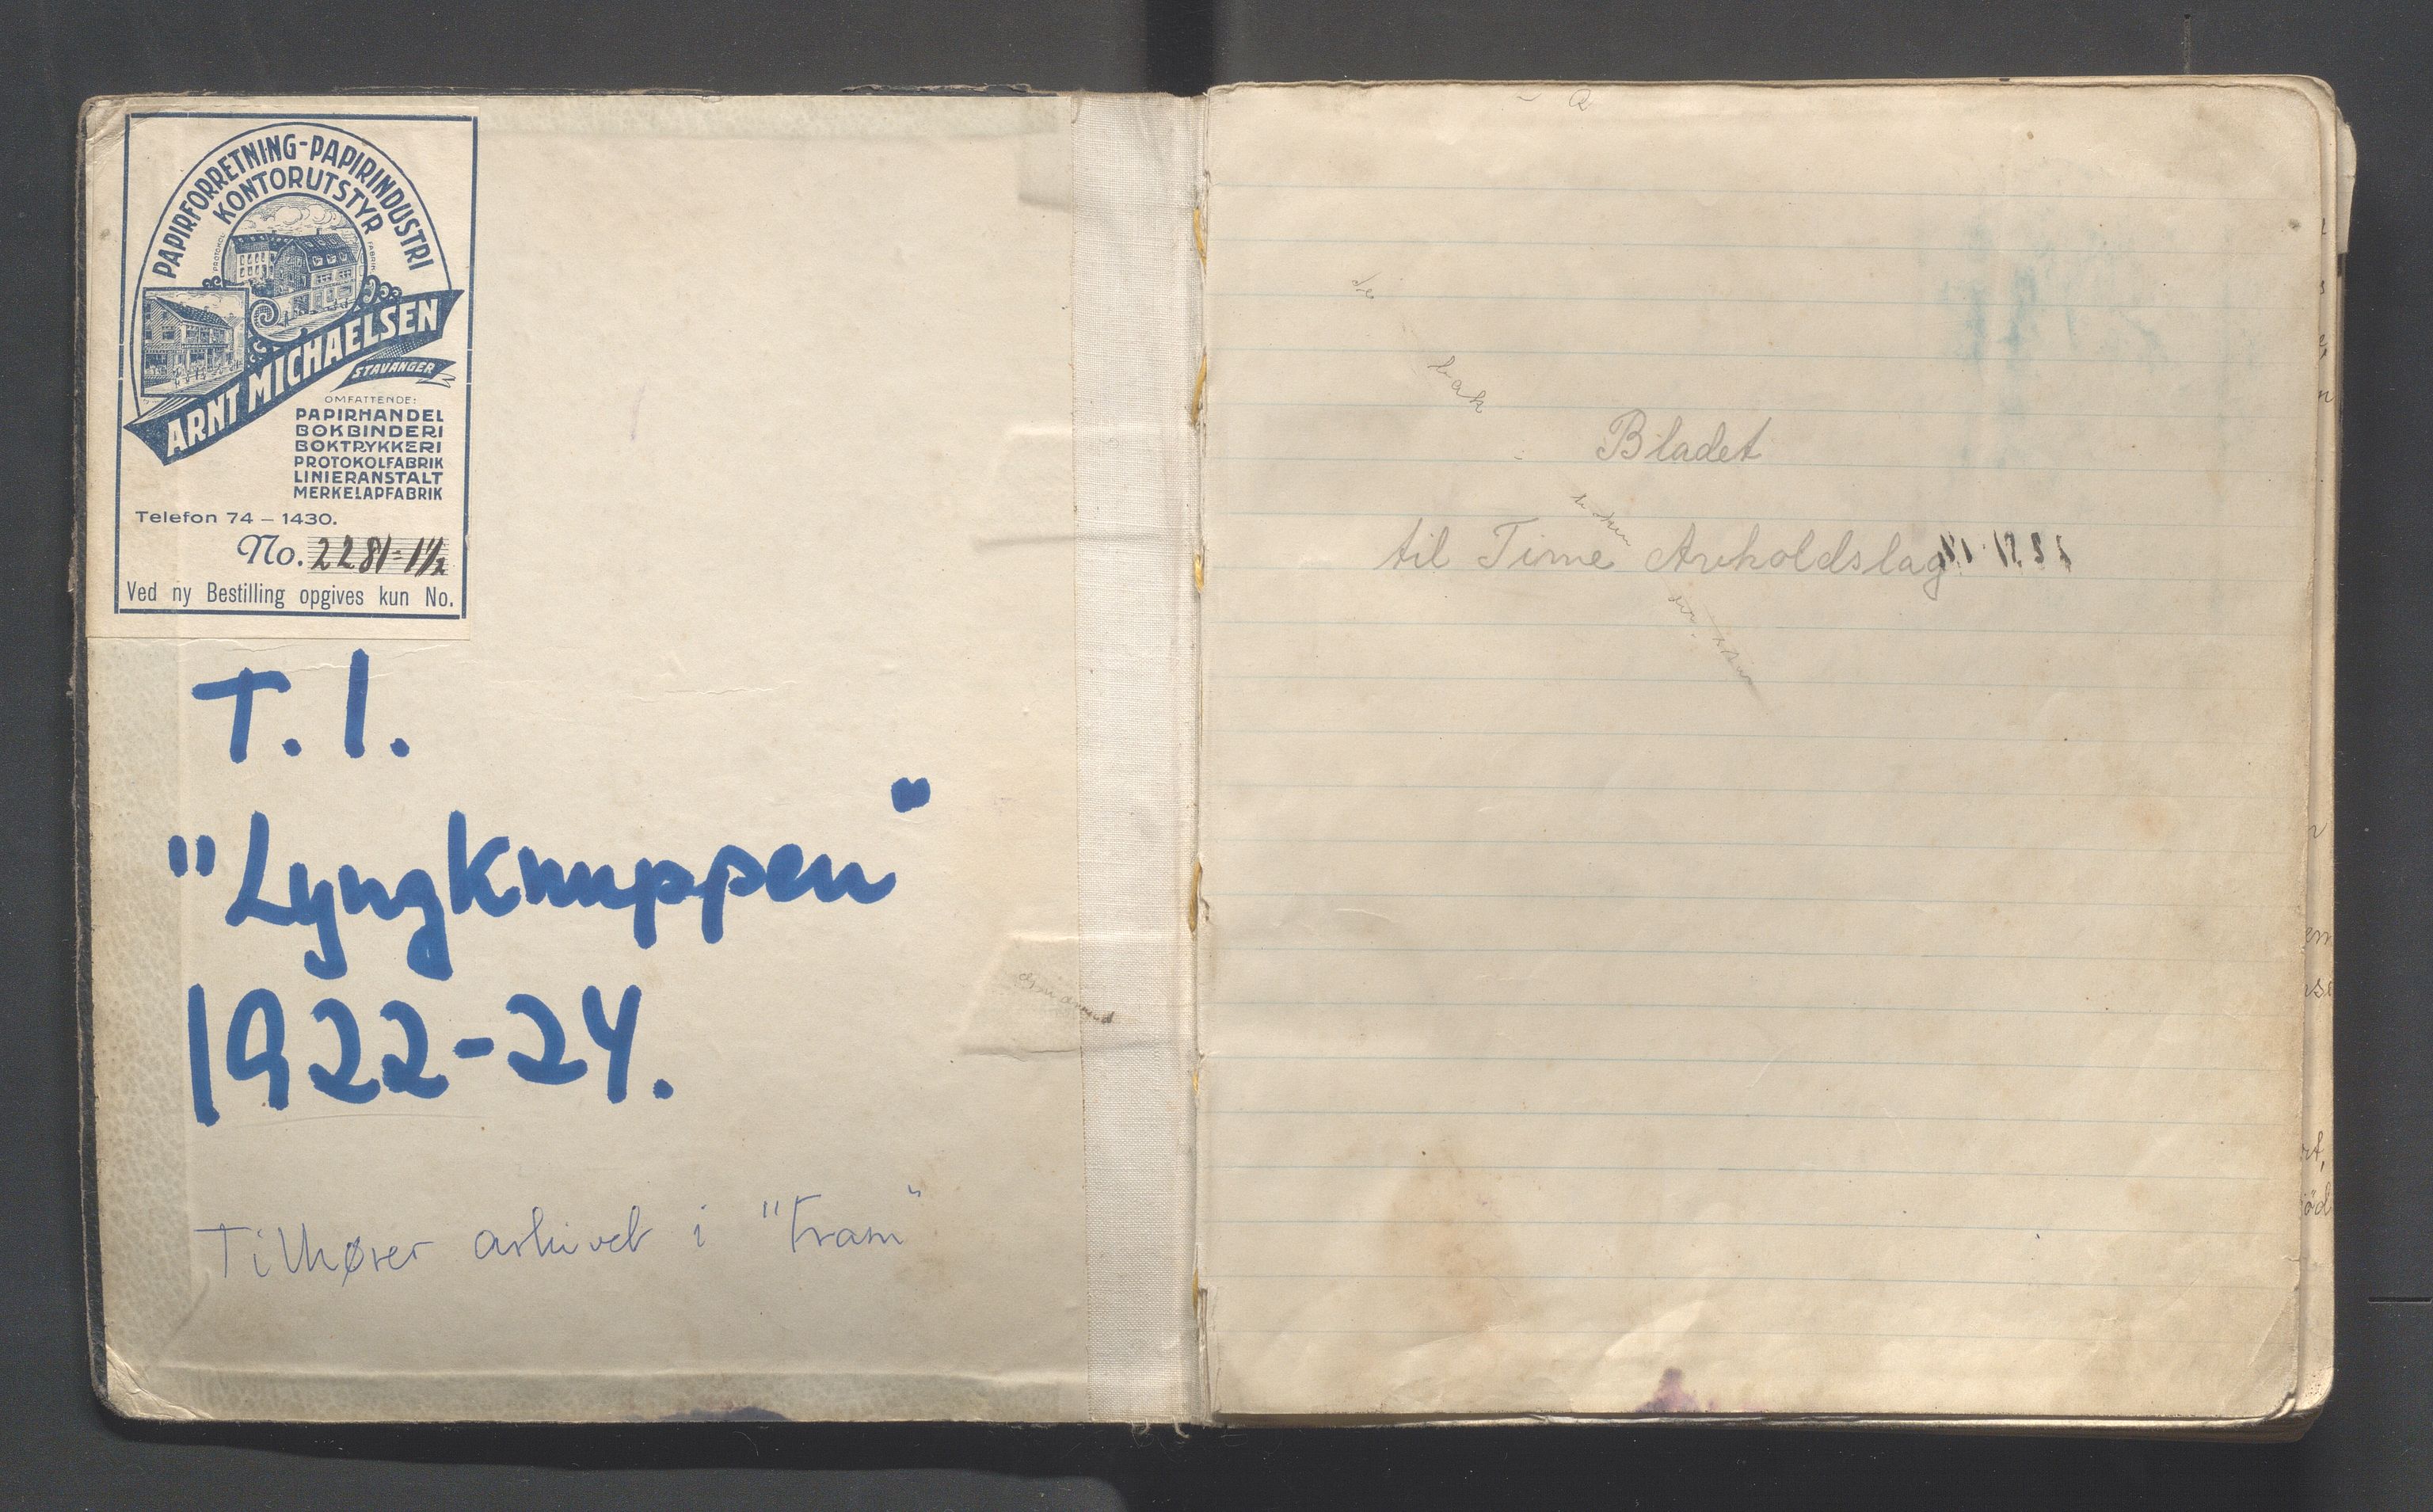 PAPIRFORRETNING-PAPIRINDUSTRI
KONTORUTSTYR
PROTOKOL FABRIK
ARNT MICHAELSEN
STAVANGER
OMFATTENDE:
PAPIRHANDEL
BOKBINDERI
BOKTRYKKERI
PROTOKOLFABRIK
LINIERANSTALT
MERKELAPFABRIK
Telefon 74 – 1430.
No. 2281-1½
Ved ny Bestilling opgives kun No.
T. I.
"Lyngknuppen"
1922-24.
Tilhører arkivet i "Fram"
bak
Bladet
til Time Avholdslag